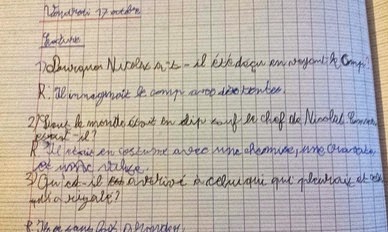 Vendredi 17 octobre
Lecture
1) Pourquoi Nicolas a-t-il été déçu en voyant le Camp?
R: Il immaginait le camp avec des tentes.
2) Tout le monde était en slip sauf le chef de Nicolas. Comment
était-il?
R: Il était en costume avec une chemise, une cravate,
et une valise.
3) Qu'est-il arrivé à celui qui qui pleurait et
R: Il a sans